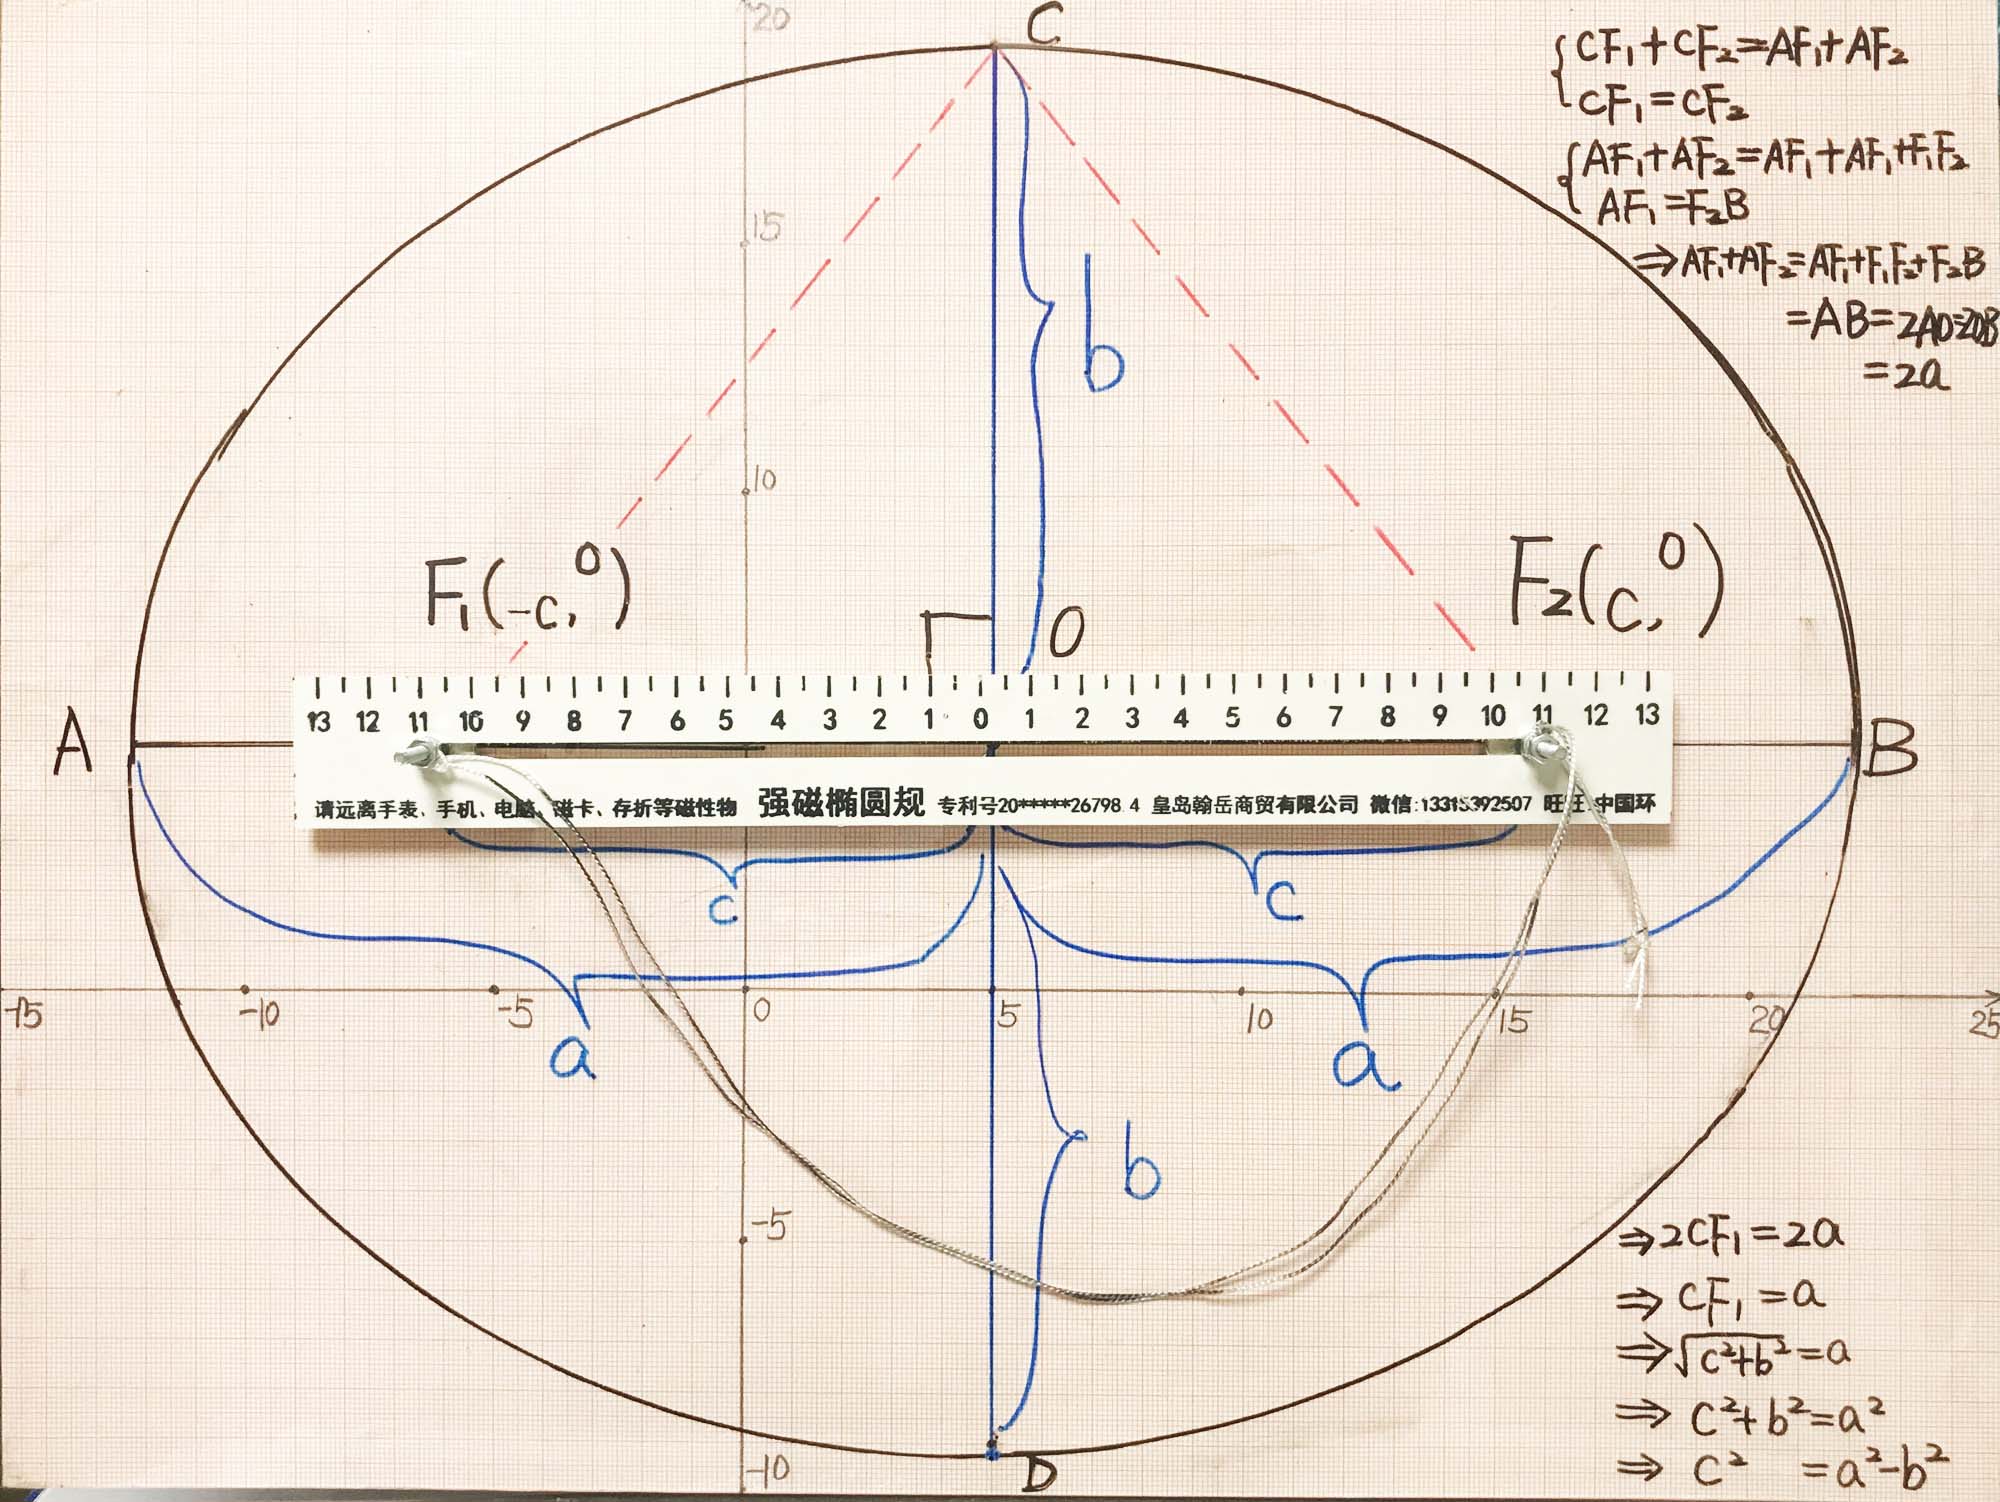 20
C
CF₁+CF₂=AF₁+AF₂
CF₁=CF₂
AF₁+AF₂=AF₁+AF₁+F₁F₂
AF₁=F₂B
⇒AF₁+AF₂=AF₁+F₁F₂+F₂B
=AB=2AO=2OB
=2a
15
b
10
F₁(-c,0)
O
F₂(c,0)
13 12 11 10 9 8 7 6 5 4 3 2 1 0 1 2 3 4 5 6 7 8 9 10 11 12 13
A
B
请远离手表、手机、电脑、磁卡、存折等磁性物 强磁椭圆规 专利号20*****26798.4 皇岛翰岳商贸有限公司 微信:13315392507 旺旺:中国环
c
c
-15 -10 -5 0 5 10 15 20 25
a
a
b
-5
⇒2CF₁=2a
⇒CF₁=a
⇒√c²+b²=a
⇒c²+b²=a²
⇒c²=a²-b²
-10
D